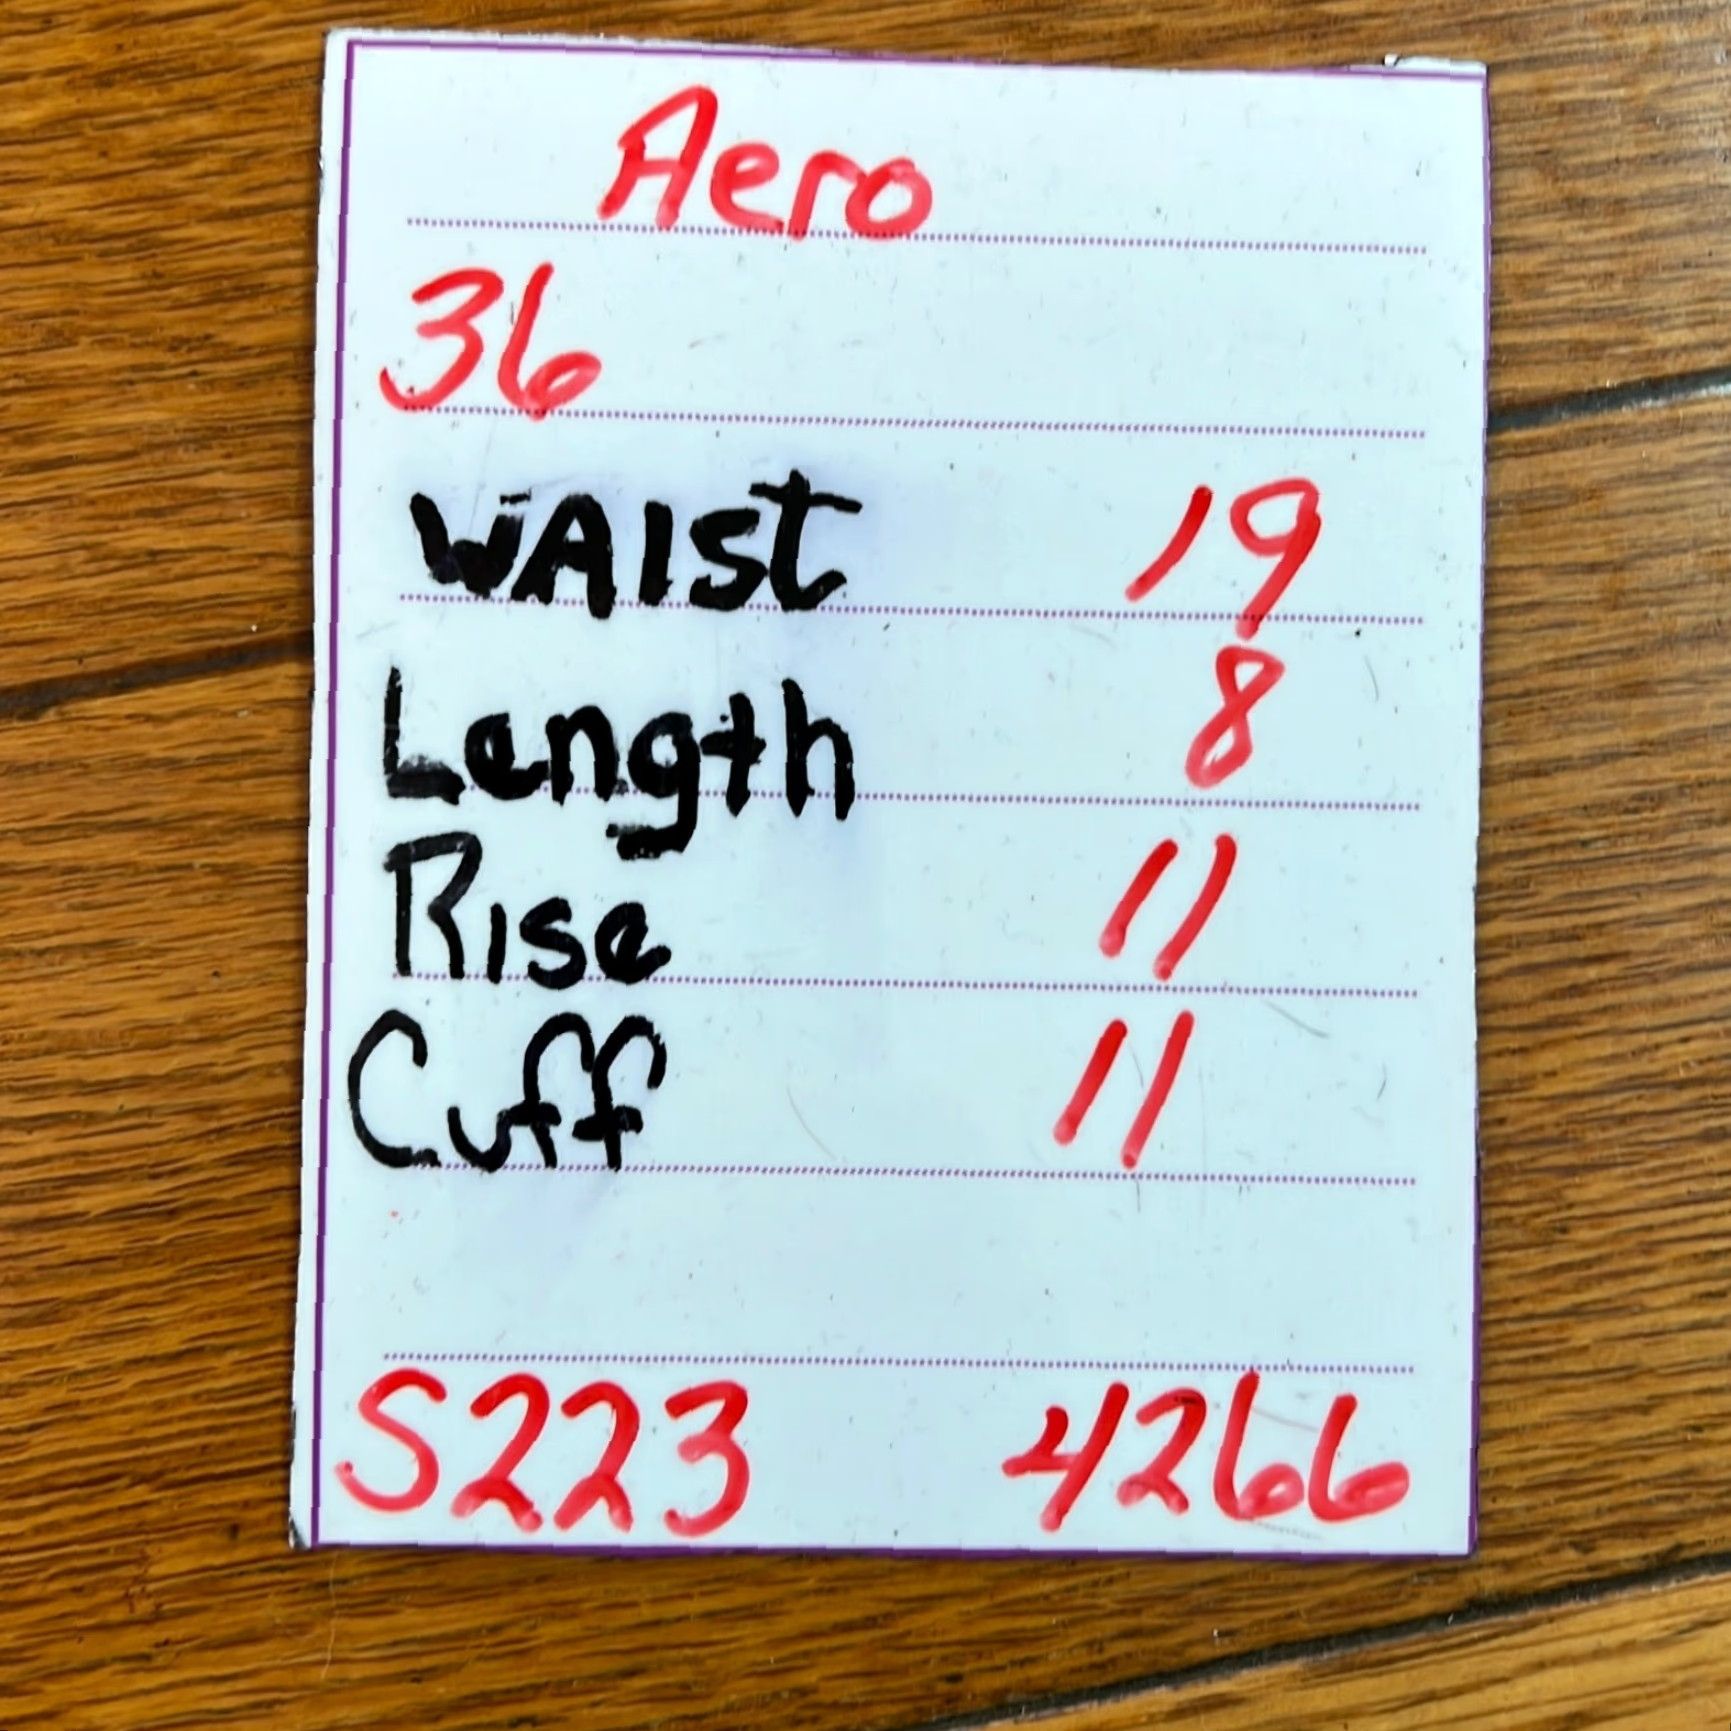 Aero
36
WAIst 19
Length 8
Rise 11
Cuff 11
S223 4266